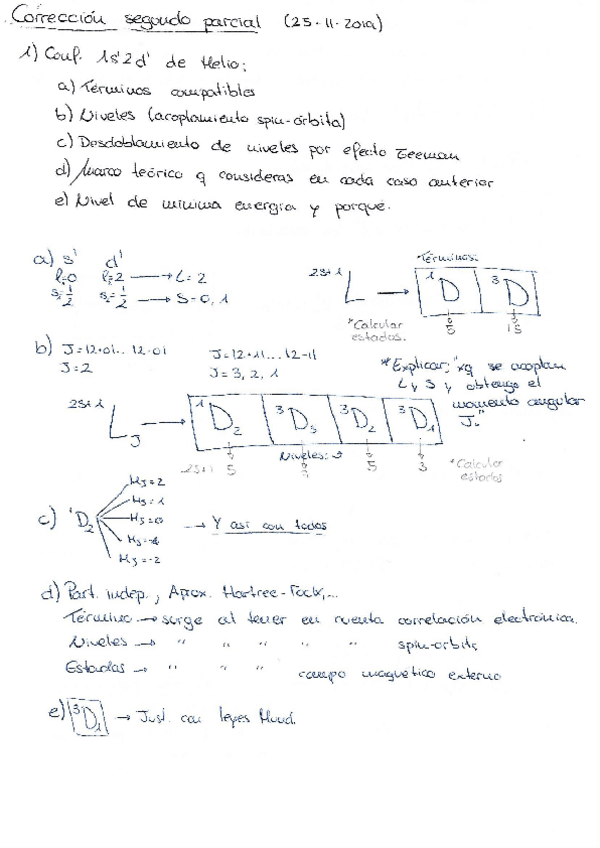 Corrección segundo parcial (25-11-2019)
1) Conf. 1s¹2d¹ de Helio:
a) Términos compatibles
b) Niveles (acoplamiento spin-órbita)
c) Desdoblamiento de niveles por efecto Zeeman
d) Marco teórico q consideras en cada caso anterior
e) Nivel de mínima energía y porqué.
a) s¹ d¹
l=0 l=2 → L=2
s=1/2 s=1/2 → S=0,1
2S+1 L → Términos: ¹D ³D
5 15
*Calcular estados.
b) J=|2+0|...|2-0| J=|2+1|...|2-1|
J=2 J=3, 2, 1
*Explicar: "xq se acoplan
L y S y obtengo el
momento angular
J."
2S+1 L J → ¹D₂ ³D₃ ³D₂ ³D₁
Niveles:
2J+1 5 7 5 3 *Calcular estados
c) ¹D₂ MJ=2
MJ=1
MJ=0 → Y así con todos
MJ=-1
MJ=-2
d) Part. indep., Aprox. Hartree-Fock,...
Término → surge al tener en cuenta correlación electrónica.
Niveles → " " " " " spin-orbit,
Estados → " " " campo magnético externo
e) ³D₁ → Just. con leyes Hund.